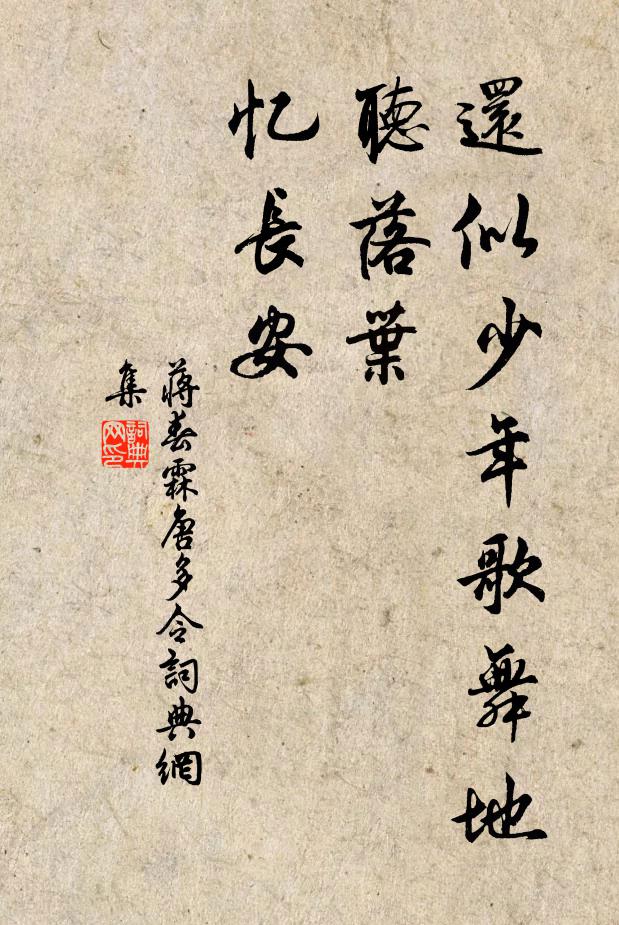 還似少年歌舞地
聽落葉
忆長安
蔣春霖唐多令詞典網
集
詞典
网印